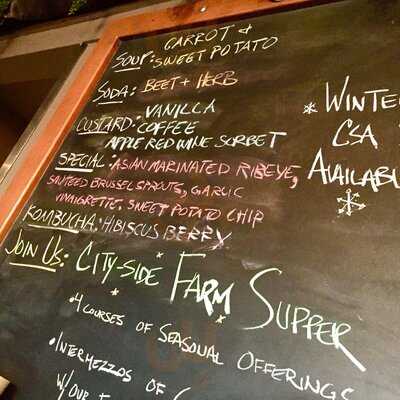 SOUP: CARROT &
SWEET POTATO
SODA: BEET + HERB
CUSTARD: VANILLA
COFFEE
APPLE RED WINE SORBET
SPECIAL: ASIAN MARINATED RIBEYE,
SAUTEED BRUSSEL SPROUTS, GARLIC
VINAIGRETTE, SWEET POTATO CHIP
KOMBUCHA: HIBISCUS BERRY
* WINTE
CSA
AVAILABL
JOIN US: CITY-SIDE FARM SUPPER
• 4 COURSES OF SEASONAL OFFERINGS
• INTERMEZZOS OF
W/ OUR